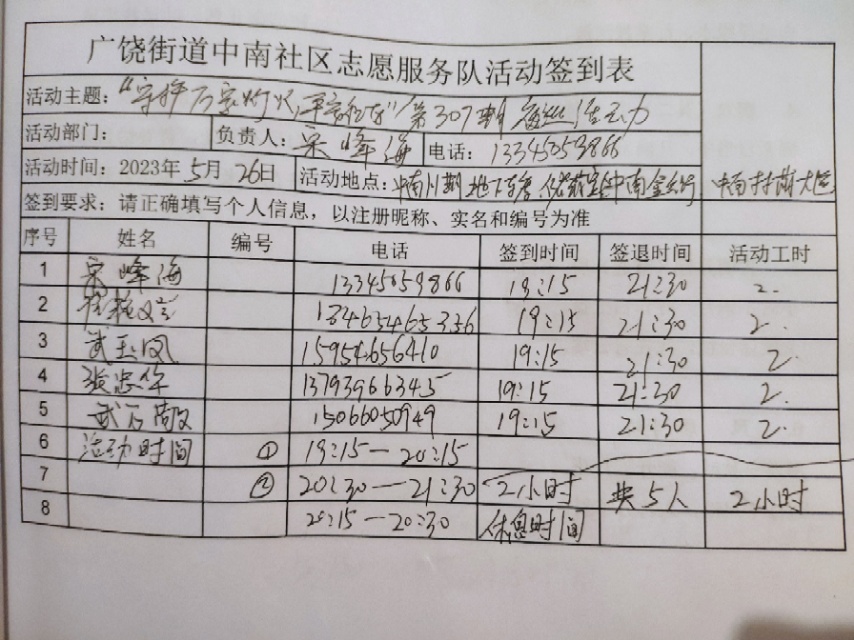 广饶街道中南社区志愿服务队活动签到表
活动主题：“守护万家灯火，平安社区”第307期 活动
活动部门： 负责人：宋峰海 电话：13345059866
活动时间：2023年5月26日 活动地点： 地下车库
签到要求：请正确填写个人信息，以注册昵称、实名和编号为准
序号 姓名 编号 电话 签到时间 签退时间 活动工时
1 宋峰海 13345059866 19:15 21:30 2.
2 19:15 21:30 2.
3 武玉凤 15954656410 19:15 21:30 2.
4 张忠华 13793966345 19:15 21:30 2.
5 15066050949 19:15 21:30 2.
6 活动时间 ① 19:15—20:15
7 ② 20:30—21:30 2小时 共5人 2小时
8 20:15—20:30 休息时间